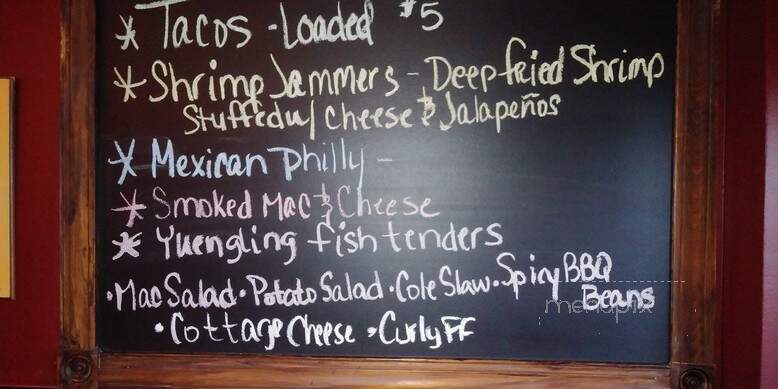 * Tacos - Loaded $5
* Shrimp Jammers - Deep fried Shrimp
Stuffed w/ Cheese & Jalapeños
* Mexican Philly -
* Smoked Mac & Cheese
* Yuengling fish tenders
• Mac Salad • Potato Salad • Cole Slaw • Spicy BBQ
Beans
• Cottage Cheese • Curly FF
menupix